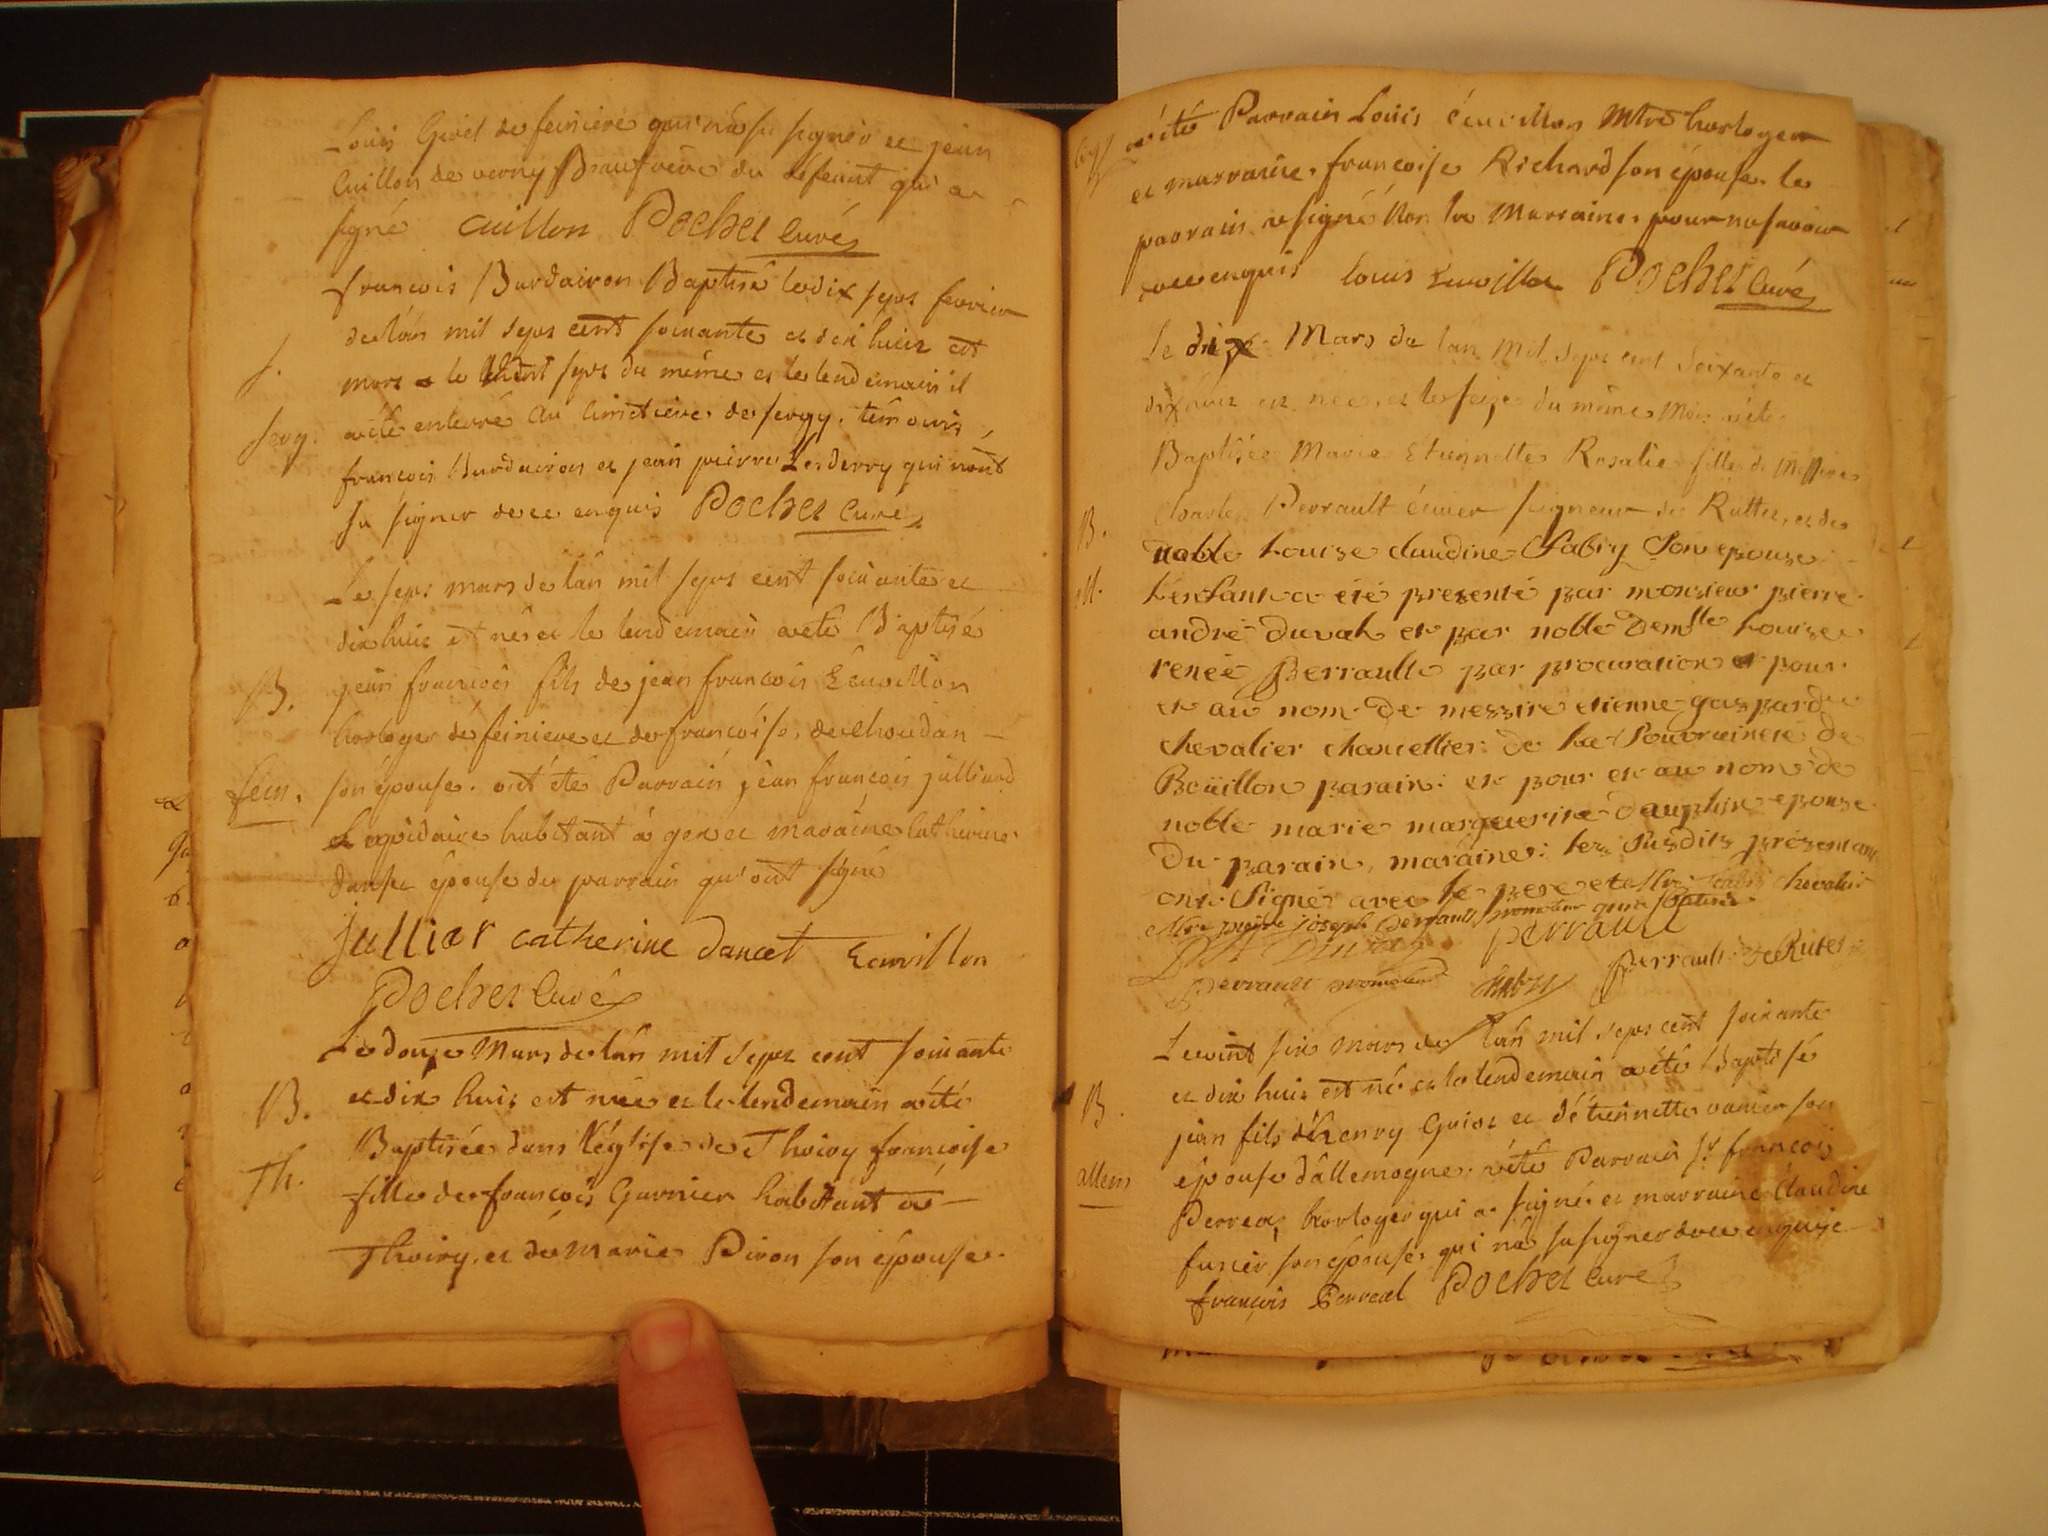 Louis Girel de feiniere qui n'a su signer et jean
Cuillon de verny Beaufrere du défunt qui a
signé Cuillon Pochet Curé
françois Burdairon Baptisé le dix sept fevrier
de l'an mil sept cent soixante et dix huit est
S.
mort le vint sept du même et le lendemain il
a été enterré au cimetiere de sergy. témoins
sergy.
françois Burdairon et jean pierre Lesderry qui n'ont
su signer de ce enquis Pochet Curé
Le sept mars de l'an mil sept cent soixante et
dix huit est né et le lendemain a été Baptisé
B.
jean françois fils de jean françois Ecuvillon
horloger de feiniere et de françoise dechoudan
fein.
son épouse. ont été Parrain jean françois julliard
lapidaire habitant à gex et maraine Catherine
danset épouse du parrain qui ont signé
julliar catherine dancet Ecuvillon
Pochet Curé
Le douze Mars de l'an mil sept cent soixante
et dix huit est née et le lendemain a été
B.
Baptisée dans l'église de Thoiry françoise
Th.
fille de françois Garnier habitant à
Thoiry, et de Marie Piron son épouse.
a été Parrain Louis écuvillon Mtre horloger
et marraine françoise Richard son épouse le
parrain a signé non la Marraine pour ne savoir
de ce enquis louis Ecuvillon Pochet Curé
Le dix Mars de l'an Mil sept cent soixante et
dix huit est née, et le seize du même Mois a été
Baptisée Marie Etiennette Rosalie fille de Messire
Charles Perrault écuier seigneur de Ruttet, et de
B.
noble Louise claudine Fabry Son epouse
L'enfant a été presenté par monsieur pierre
andré duval et par noble Demlle Louise
renée Perrault par procuration et pour
et au nom de messire etienne gaspard
chevalier chancellier de la Souvraineté de
Boüillon parain: et pour et au nom de
noble marie marguerite dauphin epouse
du parain, maraine: les Susdits présentans
ont Signé avec le pere et Mr. fabry chevalier
et Mre pierre joseph Perrault
Duval perrault
Perrault fabry Perrault de Rutet
Le vint six mars de l'an mil sept cent soixante
et dix huit est né et le lendemain a été Baptisé
B.
jean fils d'henry Guiot et d'étiennette vanier son
épouse d'allemogne. a été Parrain Sr françois
allem
Perreal, horloger qui a signé et marraine Claudine
furier son épouse qui n'a su signer de ce enquise
françois Perreal Pochet Curé